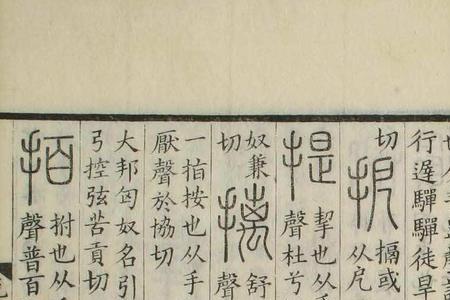 行遲驒驒徒旱
切
㧖
搹或
从戹
提
挈也从手
聲杜兮
奴兼
切
摛
舒
聲
一指按也从手
厭聲於協切
大邦匈奴名引
弓控弦苦貢切
𢫦
拊也从
聲普百